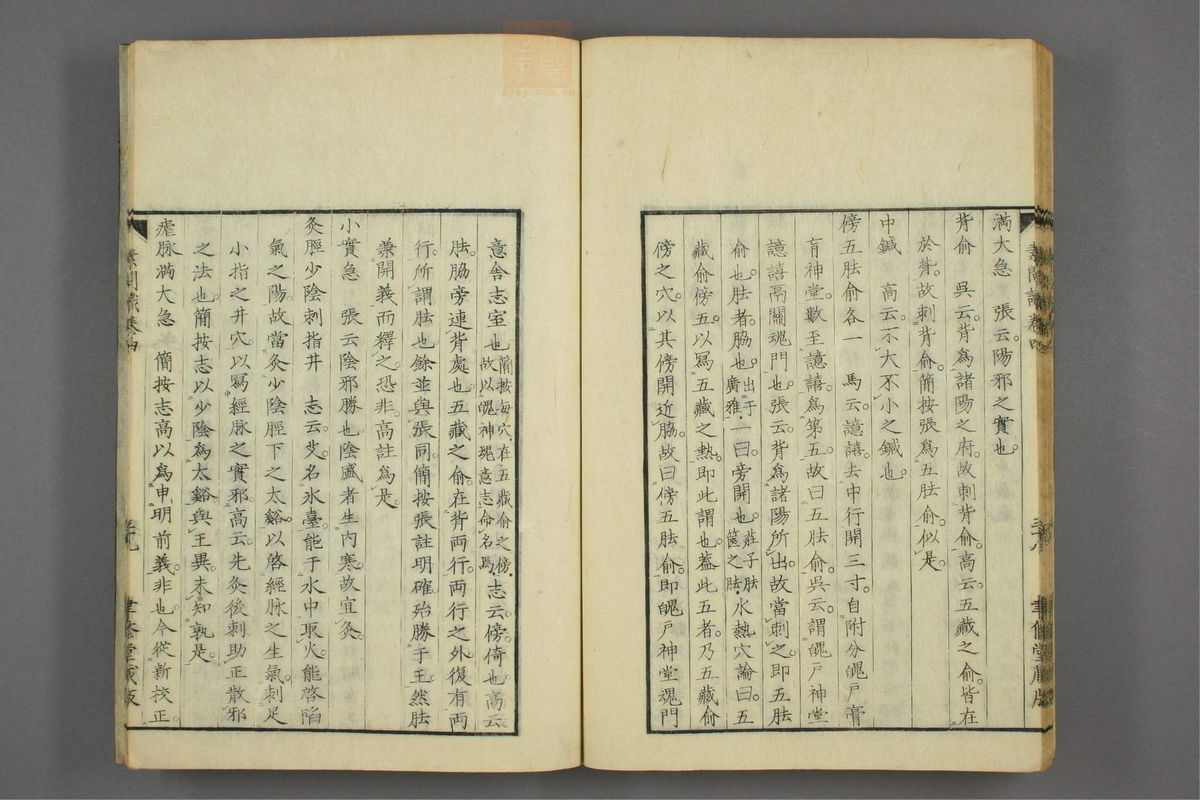 滿大急　張云陽邪之實也
背俞　吳云背爲諸陽之府故刺背俞高云五藏之俞皆在
於背故刺背俞簡按張爲五胠俞似是
中鍼　高云不大不小之鍼也
傍五胠俞各一　馬云譩譆去中行開三寸自附分魄戶膏
肓神堂數至譩譆爲第五故曰五胠俞吳云謂魄戶神堂
譩譆鬲關魂門也張云背爲諸陽所出故當刺之即五胠
俞也胠者脇也出于廣雅一曰旁開也莊子胠篋之胠水熱穴論曰五
藏俞傍五以寫五藏之熱即此謂也蓋此五者乃五藏俞
傍之穴以其傍開近脇故曰傍五胠俞即魄戶神堂魂門
素問識卷四
三十八
聿修堂藏版
意舍志室也簡按每穴在五藏俞之傍故以魄神魂意志命名馬志云傍倚也高云
胠脇旁連背處也五藏之俞在背兩行兩行之外復有兩
行所謂胠也餘並與張同簡按張註明確殆勝于王然胠
兼開義而釋之恐非高註爲是
小實急　張云陰邪勝也陰盛者生內寒故宜灸
灸脛少陰刺指井　志云艾名氷臺能于水中取火能啓陷
氣之陽故當灸少陰脛下之太谿以啓經脉之生氣刺足
小指之井穴以寫經脉之實邪高云先灸後刺助正散邪
之法也簡按志以少陰爲太谿與王異未知孰是
瘧脉滿大急　簡按志高以爲申明前義非也今從新校正
素問識卷四
三十九
聿修堂藏版